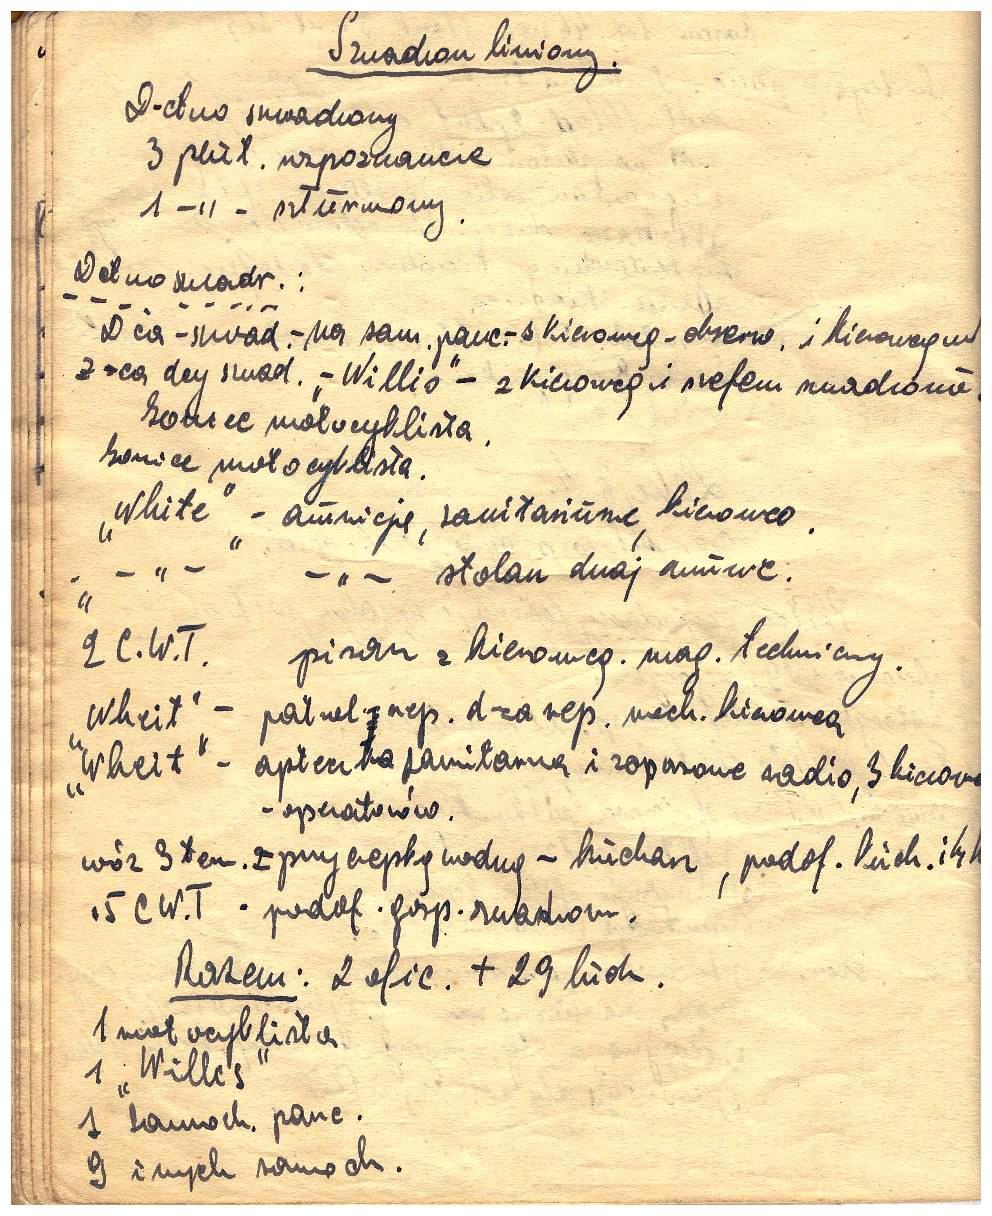 Szwadron liniowy.
D-ctwo szwadronu
3 plut. rozpoznawcze
1 -"- szturmowy.
D-ctwo szwadr.:
D-ca - szwad. - na sam. panc. - z kierowcą - obserw. i kierowcą
z-ca dcy szwad. - "Willis" - z kierowcą i szefem szwadronu.
Goniec motocyklista.
Goniec motocyklista.
"White" - amunicja, sanitariusze, kierowca.
"-"- -"- stolarz dwaj amunic.
2 C.W.T. pisarz z kierowcą. mag. techniczny.
"Wheit" - patrol rep. d-ca rep. mech. kierowca
"Wheit" - apteczka sanitarna i zapasowe radio, 3 kierow
- operatorów.
wóz 3 ton. z przyczepką wodną - kucharz, podof. kuch. i
15 C.W.T - podof. gosp. szwadronu.
Razem: 2 ofic. + 29 ludz.
1 motocyklista
1 "Willis"
1 samoch. panc.
9 innych samoch.